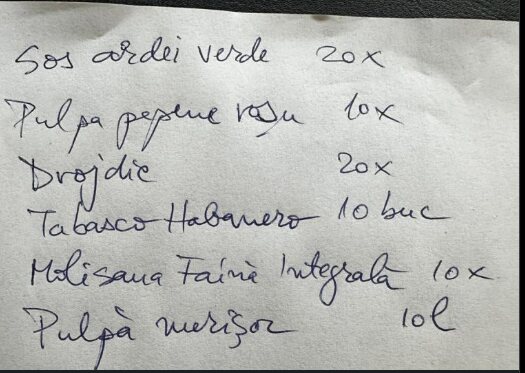 Sos ardei verde 20x
Pulpa pepene roșu 10x
Drojdie 20x
Tabasco Habanero 10 buc
Molisana Faină Integrală 10x
Pulpă merișor 10l